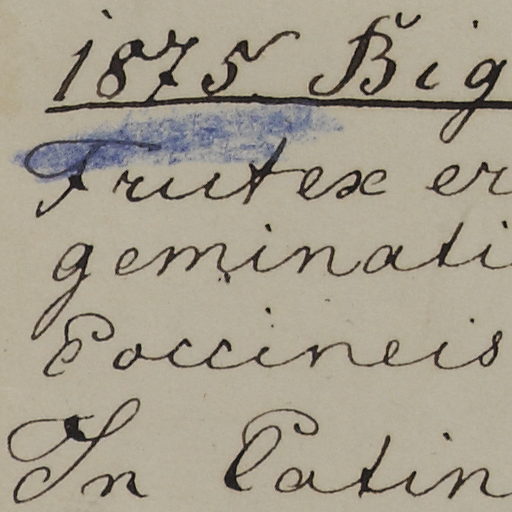 1875 Big
Frutex er
geminati
Coccineis
In Catin